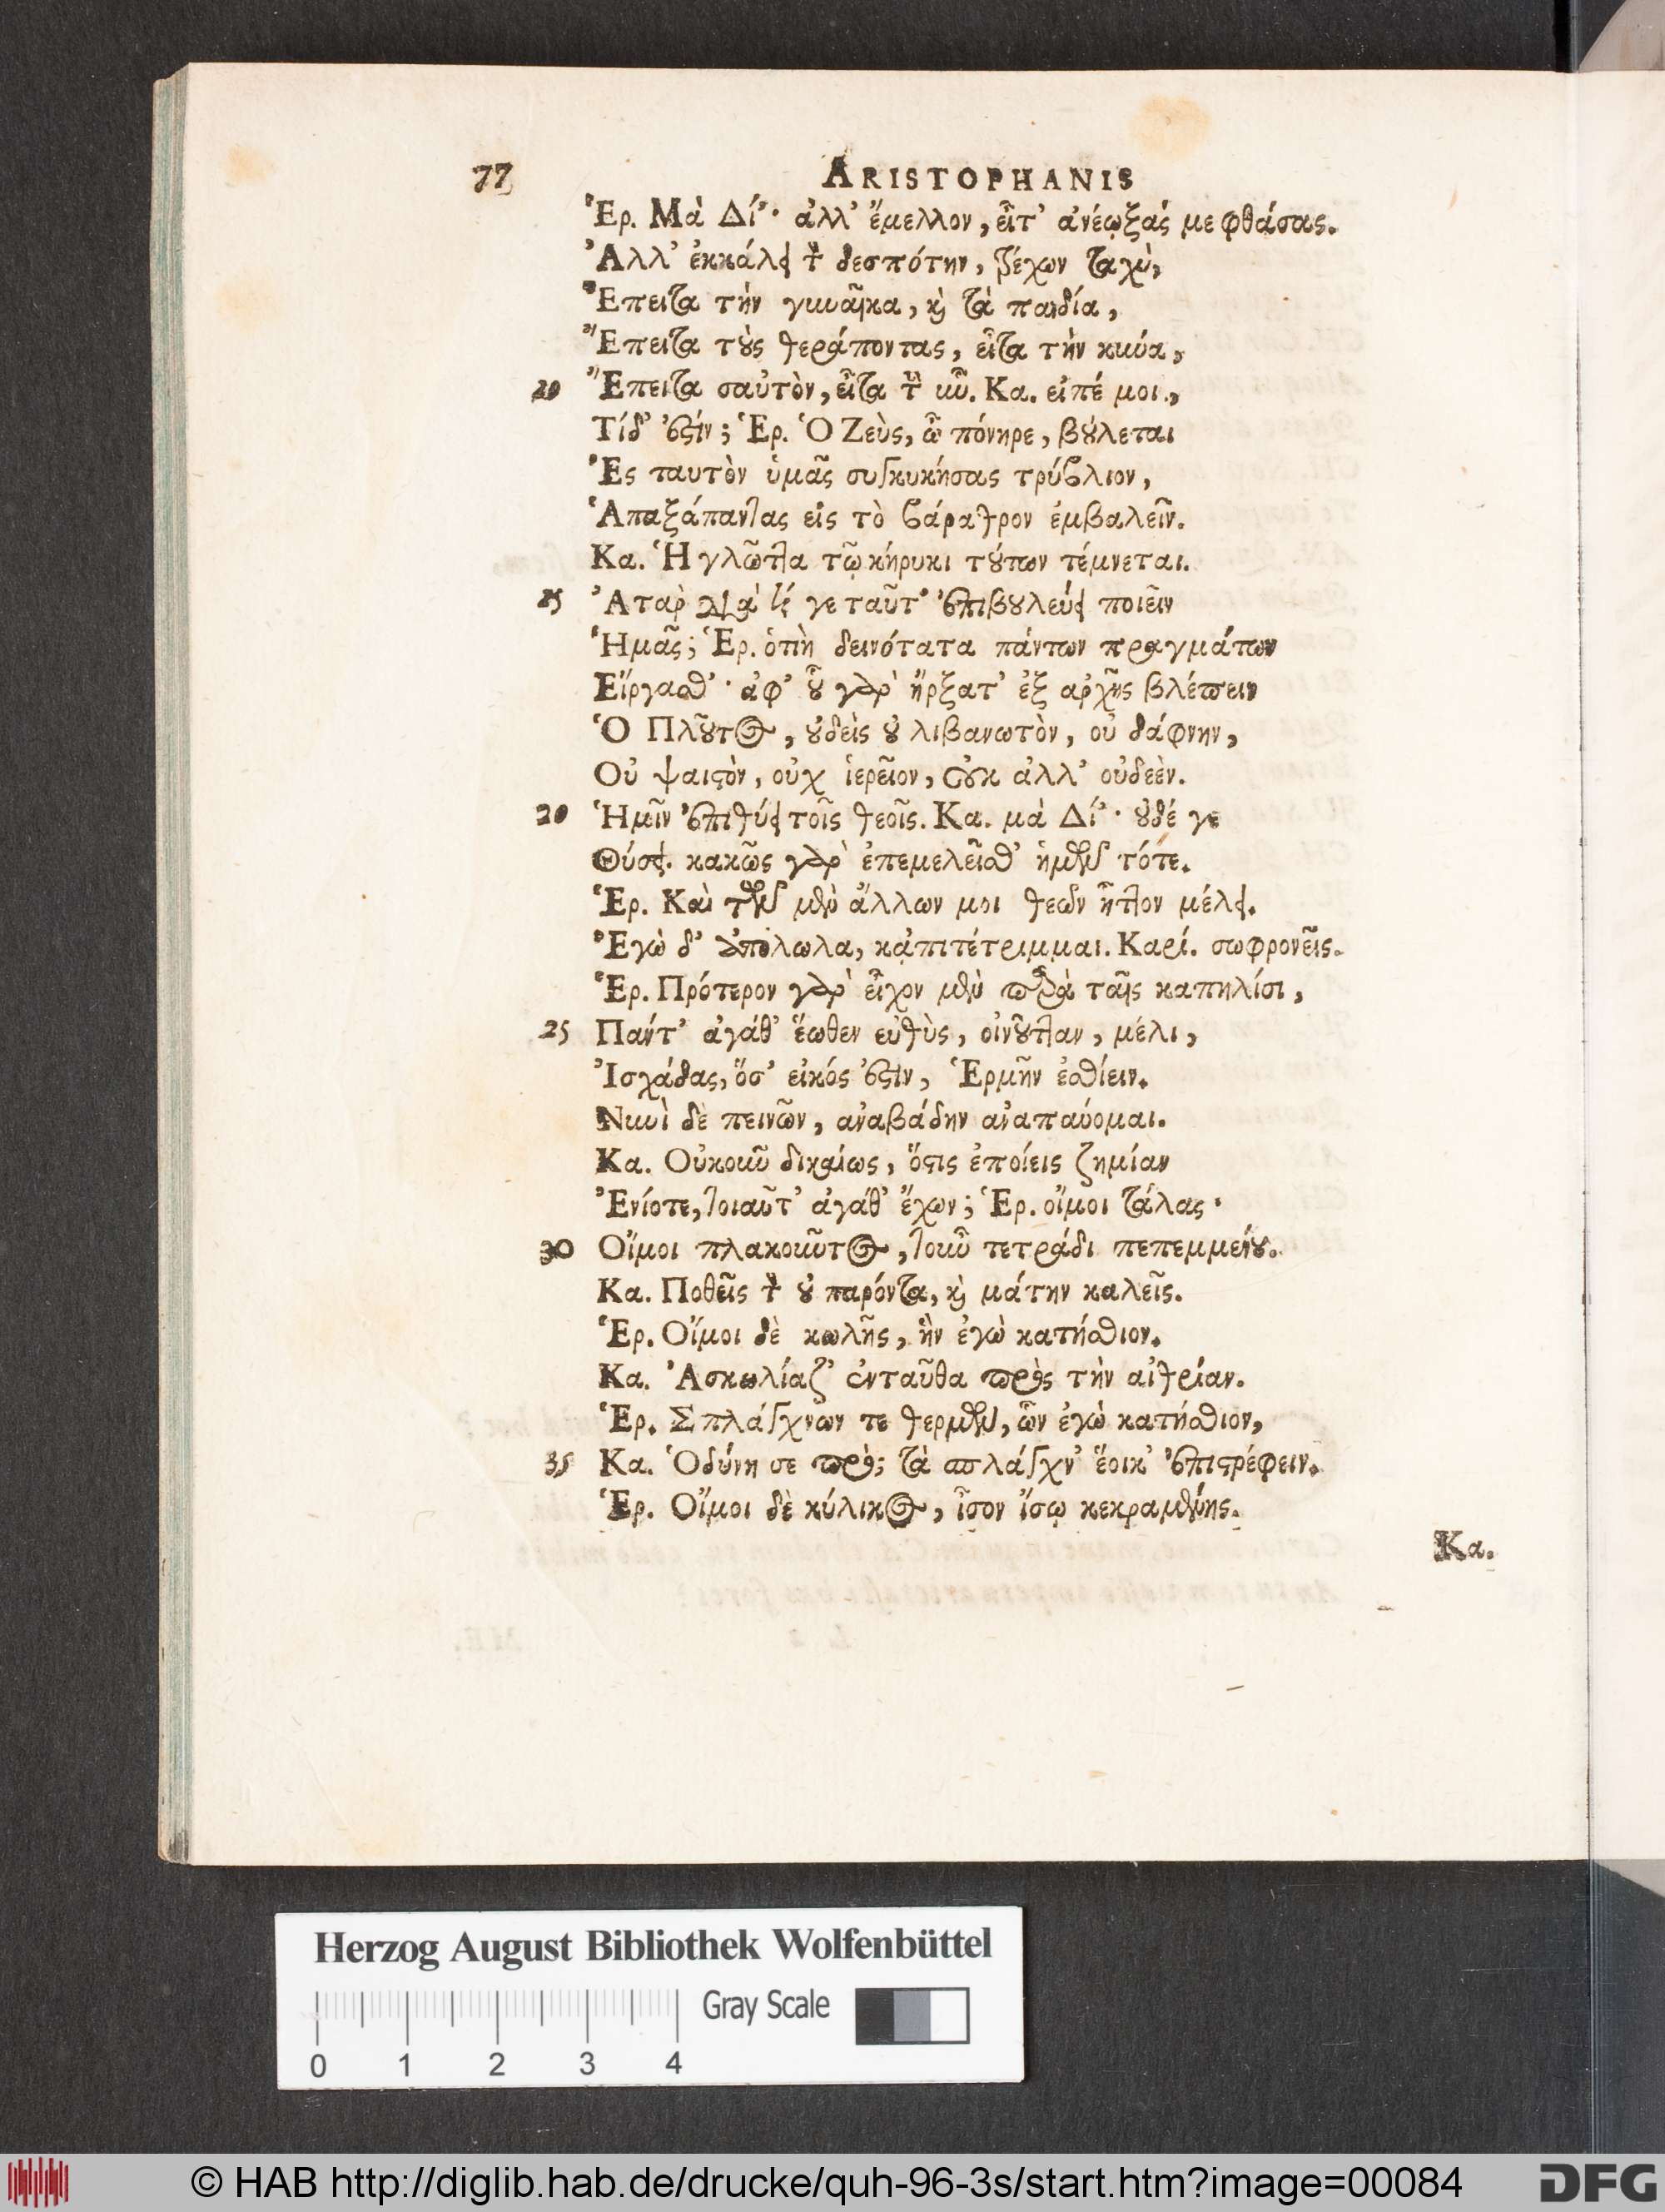 77 ARISTOPHANIS
Ἑρ. Μὰ Δί'· ἀλλ' ἔμελλον, εἶτ' ἀνέῳξάς με φθάσας.
Ἀλλ' ἐκκάλει τὸν δεσπότην, τρέχων ταχὺ,
Ἔπειτα τὴν γυναῖκα, καὶ τὰ παιδία,
Ἔπειτα τοὺς θεράποντας, εἶτα τὴν κύνα,
10 Ἔπειτα σαὐτὸν, εἶτα τὴν ὗν. Κα. εἰπέ μοι.,
Τίδ' ἐστίν; Ἑρ. Ὁ Ζεὺς, ὦ πόνηρε, βούλεται
Ἐς ταυτὸν ὑμᾶς συγκυκήσας τρύβλιον,
Ἁπαξάπαντας εἰς τὸ βάραθρον ἐμβαλεῖν.
Κα. Ἡ γλῶττα τῷ κήρυκι τούτων τέμνεται.
15 Ἀταρ διὰ τί γε ταῦτ' ἐπιβουλεύει ποιεῖν
Ἡμᾶς; Ἑρ. ὁτιὴ δεινότατα πάντων πραγμάτων
Εἴργασθ'· ἀφ' οὗ γὰρ ἤρξατ' ἐξ αρχῆς βλέπειν
Ὁ Πλοῦτος, οὐδεὶς οὐ λιβανωτὸν, οὐ δάφνην,
Οὐ ψαιστὸν, οὐχ ἱερεῖον, οὐκ ἀλλ' οὐδεὲν.
20 Ἡμῖν ἐπιθύει τοῖς θεοῖς. Κα. μὰ Δί'· οὐδέ γε
Θύσει. κακῶς γὰρ ἐπεμελεῖσθ' ἡμῶν τότε.
Ἑρ. Καὶ τῶν μὲν ἄλλων μοι θεῶν ἧττον μέλει.
Ἐγὼ δ' ἀπόλωλα, κᾀπιτέτριμμαι. Καρί. σωφρονεῖς.
Ἑρ. Πρότερον γὰρ εἶχον μὲν παρὰ ταῖς καπηλίσι,
25 Παντ' ἀγάθ' ἕωθεν εὐθὺς, οἰνοῦτταν, μέλι,
Ἰσχάδας, ὅσ' εἰκός ἐστιν, Ἑρμῆν ἐσθίειν.
Νυνὶ δὲ πεινῶν, αναβάδην αναπαύομαι.
Κα. Οὐκοῦν δικαίως, ὅστις ἐποίεις ζημίαν
Ἐνίοτε, τοιαῦτ' ἀγάθ' ἔχων; Ἑρ. οἴμοι τάλας·
30 Οἴμοι πλακοῦντος, τοῦν τετράδι πεπεμμένου.
Κα. Ποθεῖς τὸν οὐ παρόντα, καὶ μάτην καλεῖς.
Ἑρ. Οἴμοι δὲ κωλῆς, ἣν ἐγὼ κατήσθιον.
Κα. Ἀσκωλίαζ' ἐνταῦθα πρὸς τὴν αἰθρίαν.
Ἑρ. Σπλάγχνων τε θερμῶν, ὧν ἐγὼ κατήσθιον,
35 Κα. Ὀδύνη σε πρὸς τὰ σπλάγχν' ἔοικ' ἐπιστρέφειν.
Ἑρ. Οἴμοι δὲ κύλικος, ἶσον ἴσῳ κεκραμένης.
Κα.
Herzog August Bibliothek Wolfenbüttel
Gray Scale
0 1 2 3 4
© HAB http://diglib.hab.de/drucke/quh-96-3s/start.htm?image=00084
DFG